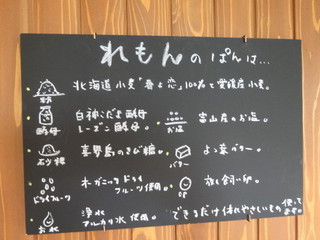 れもんのぱんは…
粉 北海道小麦「春よ恋」100%と愛媛産小麦。
酵母 白神こだま酵母
レーズン酵母。
お塩 富山産のお塩。
きび糖 喜界島のきび糖。
バター よつ葉バター。
ドライフルーツ オーガニックドライ
フルーツ使用。
放し飼い卵。
お水 浄水
アルカリ水使用。
できるだけ体にやさしいもの使って
ます。